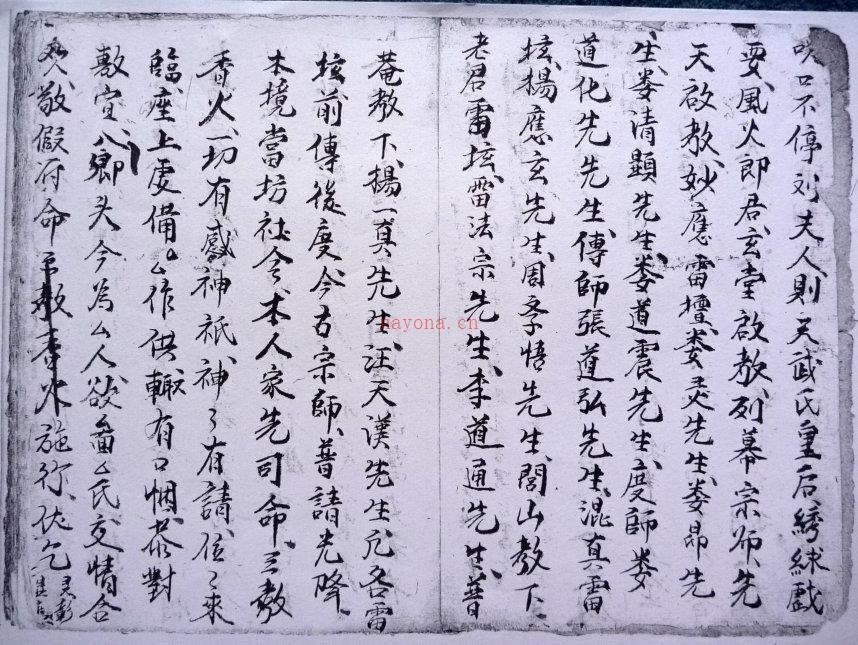 口不停列夫人則天武氏皇后綉綵戲
要風火郎君玄堂啟教列幕宗師先
天啟教妙應雷壇娄灵先生娄昂先
生娄清顯先生娄道震先生度師娄
道化先先生傳師張道弘先生混真雷
坛揚應玄先生周季悟先生閭山教下
老君雷坛雷法宗先生李道通先生普
菴教下揚一真先生汪天漢先生凢各雷
坛前傳後度今古宗師普請光降
本境當坊社令本人家先司命三教
香火一切有感神祇神〻有請位〻來
臨座上虔備厶作供輙有口悃恭對
敷宣八鄉头今為厶人欲畨厶氏交情合
敬假符命三教香火施行伏乞